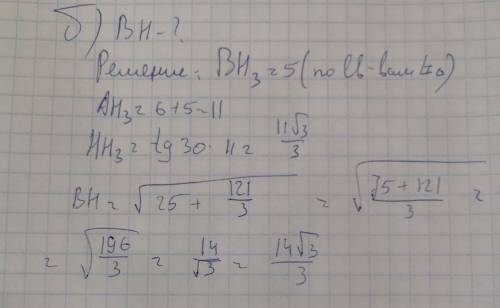 б) BH - ?
Решение: BH₃ = 5 (по св-вам
AH₃ = 6+5 = 11
HH₃ = tg 30 · 11 = 11√3/3
BH = √(25 + 121/3) = √((75+121)/3) =
= √(196/3) = 14/√3 = 14√3/3